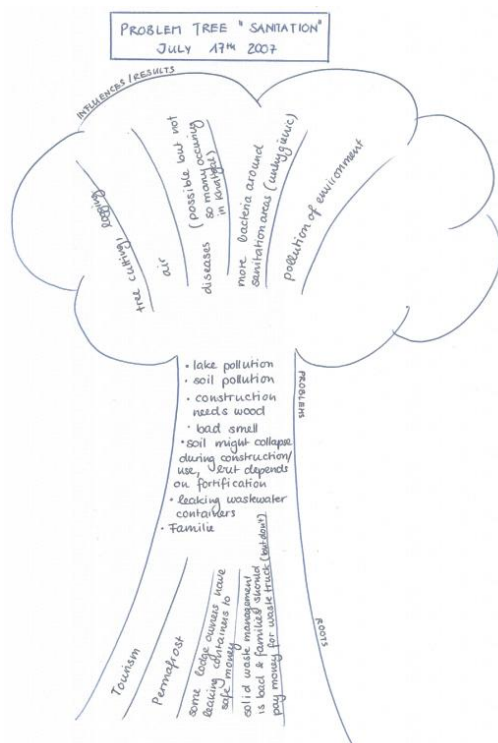 PROBLEM TREE "SANITATION"
JULY 17TH 2007
INFLUENCES/RESULTS
tree cutting/ logging
air
diseases (possible but not
so many occuring
in Khatgal)
more bacteria around
sanitation areas (unhygienic)
pollution of environment
PROBLEMS
· lake pollution
· soil pollution
· construction
needs wood
· bad smell
· soil might collapse
during construction/
use, but depends
on fortification
· leaking wastewater
containers
· Familie
ROOTS
Tourism
Permafrost
some lodge owners have
leaking containers to
safe money
solid waste management
is bad & families should
pay money for waste truck (but don't)